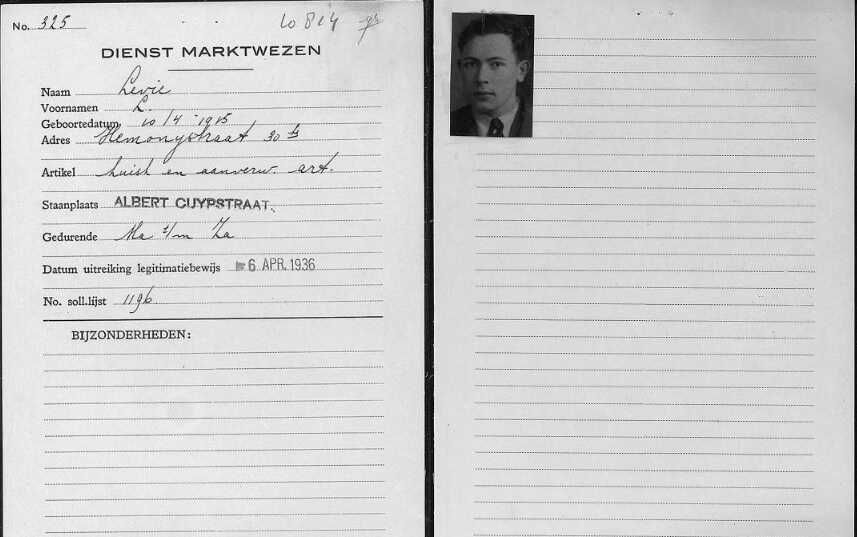 No. 325
10814
DIENST MARKTWEZEN
Naam Levie
Voornamen L.
Geboortedatum 10/4 - 1915
Adres Hemonystraat 30 hs
Artikel huish en aanverw. art.
Staanplaats ALBERT CUYPSTRAAT.
Gedurende Ma t/m Za
Datum uitreiking legitimatiebewijs 6 APR. 1936
No. soll.lijst 1196
BIJZONDERHEDEN: